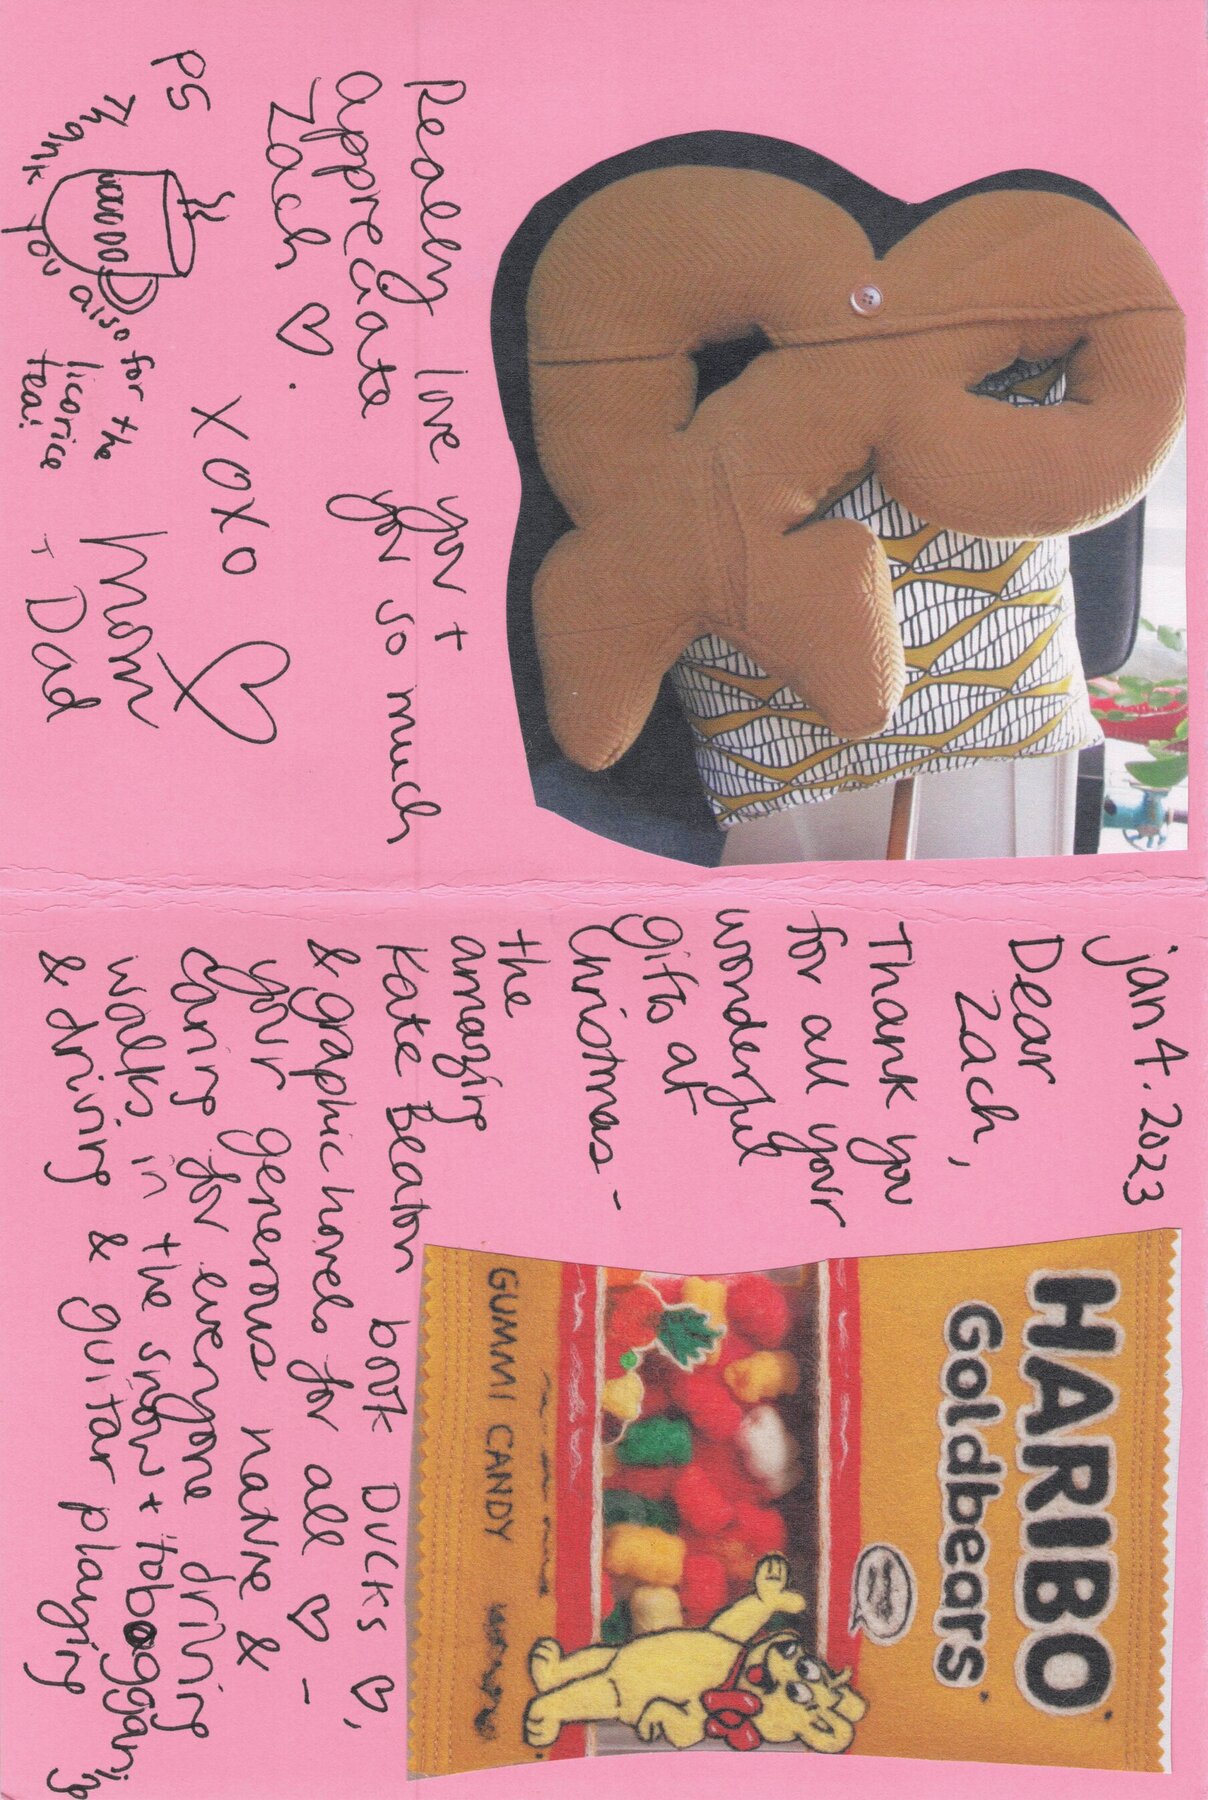 jan 4. 2023
Dear
Zach,
Thank you
for all your
wonderful
gifts at
Christmas -
the
amazing
Kate Beaton book DUCKS ♡,
& graphic novels for all ♡ -
your generous nature &
caring for everyone driving
walks in the snow + tobogganing
& driving & guitar playing
HARIBO
Goldbears
GUMMI CANDY
Really love you +
appreciate you so much
Zach ♡.
XOXO ♡
Mom
+ Dad
PS
Thank you also for the
licorice
tea!